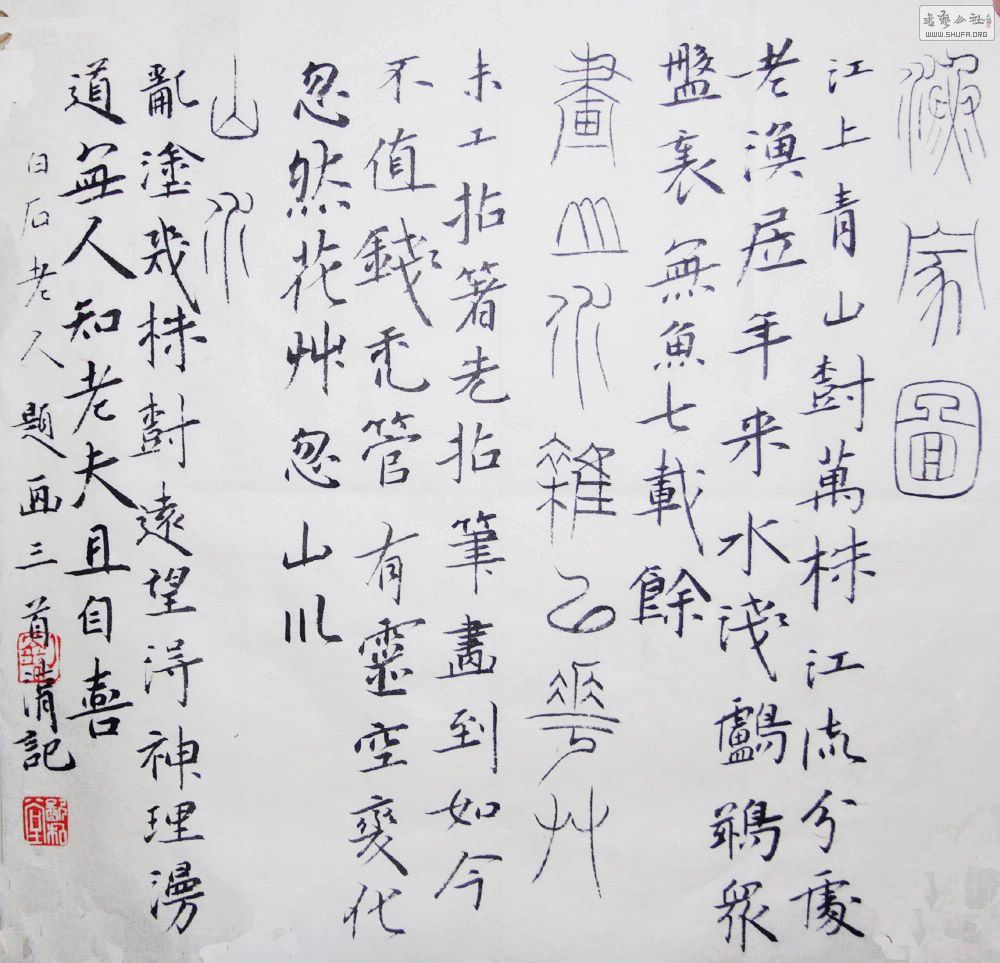 漁家圖
江上青山樹萬株江流分處
老漁居年来水淺鸕鷀衆
盤裏無魚七載餘
畫山水雜㠯華艸
未工拈著先拈筆畫到如今
不值錢禿管有靈空變化
忽然花艸忽山川
山水
亂塗幾株樹遠望得神理漫
道無人知老夫且自喜
白石老人題画三首涓記
書藝公社
WWW.SHUFA.ORG